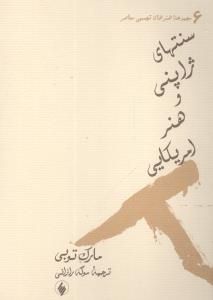 ۶ مجموعهٔ هنرهای تجسمی معاصر
سنتهای
ژاپنی
و
هنر
امریکایی
مارک توبی
ترجمهٔ سوگه رازانی